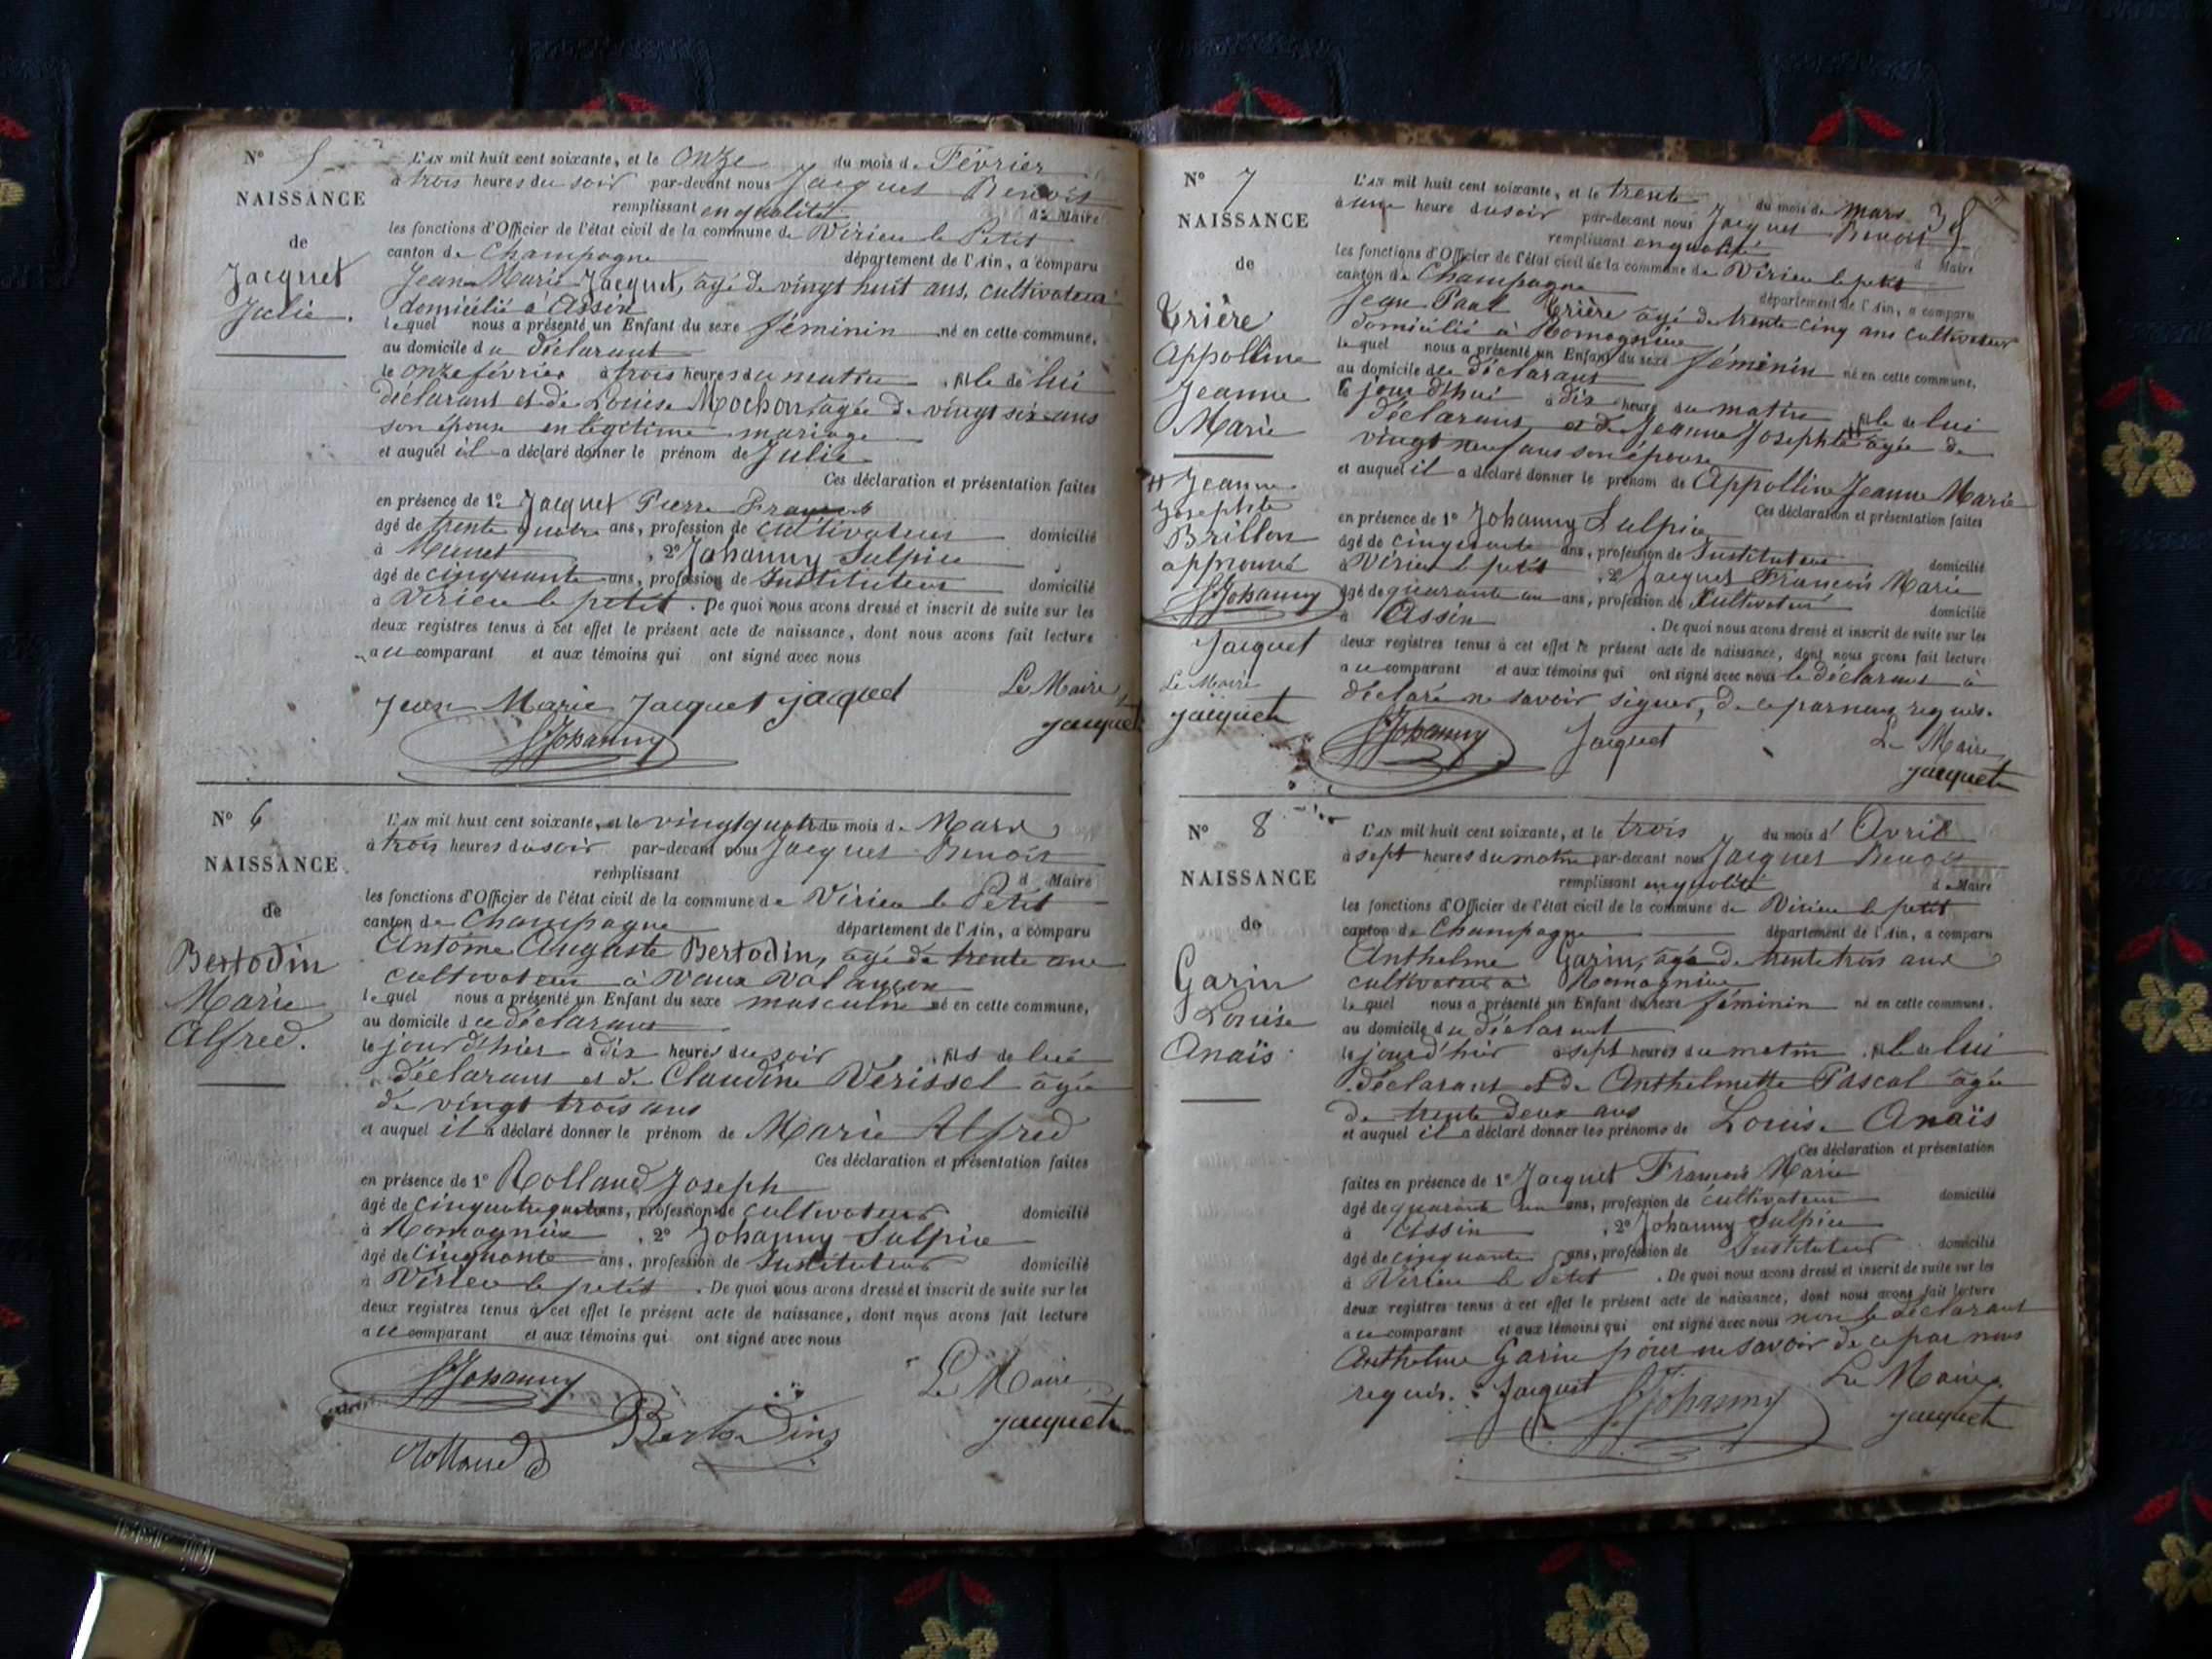 N° 5
NAISSANCE
de
Jacquet
Julie.
L'AN mil huit cent soixante, et le onze du mois de Février
à trois heures du soir par-devant nous Jacques Benoit
remplissant en qualité de Maire
les fonctions d'Officier de l'état civil de la commune de Virieu le Petit
canton de Champagne département de l'Ain, a comparu
Jean Marie Jacquet, âgé de vingt huit ans, cultivateur
domicilié à Assin
lequel nous a présenté un Enfant du sexe féminin né en cette commune,
au domicile du déclarant
le onze février à trois heures du matin, fille de lui
déclarant et de Louise Mochon, âgée de vingt six ans
son épouse en légitime mariage
et auquel il a déclaré donner le prénom de Julie
Ces déclaration et présentation faites
en présence de 1° Jacquet Pierre François
âgé de trente quatre ans, profession de cultivateur domicilié
à Munet, 2° Johanny Sulpice
âgé de cinquante ans, profession de Instituteur domicilié
à Virieu le petit. De quoi nous avons dressé et inscrit de suite sur les
deux registres tenus à cet effet le présent acte de naissance, dont nous avons fait lecture
au comparant et aux témoins qui ont signé avec nous
Jean Marie Jacquet jacquet Le Maire,
SJohanny jacquet
N° 6
NAISSANCE
de
Bertodin
Marie
Alfred.
L'AN mil huit cent soixante, et le vingt quatre du mois de Mars
à trois heures du soir par-devant nous Jacques Benoit
remplissant d Maire
les fonctions d'Officier de l'état civil de la commune de Virieu le Petit
canton de Champagne département de l'Ain, a comparu
Antoine Auguste Bertodin, âgé de trente ans
cultivateur à Vaux
lequel nous a présenté un Enfant du sexe masculin né en cette commune,
au domicile du déclarant
le jour d'hier à dix heures du soir, fils de lui
déclarant et de Claudine Verissel âgée
de vingt trois ans
et auquel il a déclaré donner le prénom de Marie Alfred
Ces déclaration et présentation faites
en présence de 1° Rolland Joseph
âgé de cinquante quatre ans, profession de cultivateur domicilié
à Romagnieu, 2° Johanny Sulpice
âgé de Cinquante ans, profession de Instituteur domicilié
à Virieu le petit. De quoi nous avons dressé et inscrit de suite sur les
deux registres tenus à cet effet le présent acte de naissance, dont nous avons fait lecture
au comparant et aux témoins qui ont signé avec nous
SJohanny Le Maire
Bertodins jacquet
Rolland
N° 7
NAISSANCE
de
Trière
Appolline
Jeanne
Marie
Jeanne
Josephte
Brillon
approuvé
SJohanny
Jacquet
Le Maire
jacquet
L'AN mil huit cent soixante, et le trente du mois de mars
à une heure du soir par-devant nous Jacques Benoit
remplissant en qualité d Maire
les fonctions d'Officier de l'état civil de la commune de Virieu le petit
canton de Champagne département de l'Ain, a comparu
Jean Paul Trière âgé de trente cinq ans cultivateur
domicilié à Romagnieu
lequel nous a présenté un Enfant du sexe féminin né en cette commune,
au domicile du déclarant
le jour d'hui à dix heure du matin, fille de lui
déclarant et de Jeanne Josephte âgée de
vingt neuf ans son épouse
et auquel il a déclaré donner le prénom de Appolline Jeanne Marie
Ces déclaration et présentation faites
en présence de 1° Johanny Sulpice
âgé de cinquante ans, profession de Instituteur domicilié
à Virieu le petit, 2° Jacquet François Marie
âgé de quarante un ans, profession de Cultivateur domicilié
à Assin. De quoi nous avons dressé et inscrit de suite sur les
deux registres tenus à cet effet le présent acte de naissance, dont nous avons fait lecture
au comparant et aux témoins qui ont signé avec nous le déclarant à
déclaré ne savoir signer, de ce par nous requis.
SJohanny Jacquet Le Maire
jacquet
N° 8
NAISSANCE
de
Garin
Louise
Anaïs
L'AN mil huit cent soixante, et le trois du mois d'Avril
à sept heures du matin par-devant nous Jacques Benoit
remplissant en qualité de Maire
les fonctions d'Officier de l'état civil de la commune de Virieu le petit
canton de Champagne département de l'Ain, a comparu
Anthelme Garin, âgé de trente trois ans
cultivateur à Romagnieu
lequel nous a présenté un Enfant du sexe féminin né en cette commune,
au domicile du déclarant
le jour d'hier à sept heures du matin, fille de lui
déclarant et de Anthelmette Pascal âgée
de trente deux ans
et auquel il a déclaré donner les prénoms de Louise Anaïs
Ces déclaration et présentation
faites en présence de 1° Jacquet François Marie
âgé de quarante un ans, profession de cultivateur domicilié
à Assin, 2° Johanny Sulpice
âgé de cinquante ans, profession de Instituteur domicilié
à Virieu le Petit. De quoi nous avons dressé et inscrit de suite sur les
deux registres tenus à cet effet le présent acte de naissance, dont nous avons fait lecture
au comparant et aux témoins qui ont signé avec nous non le déclarant
Anthelme Garin pour ne savoir de ce par nous
requis. Jacquet SJohanny Le Maire
jacquet